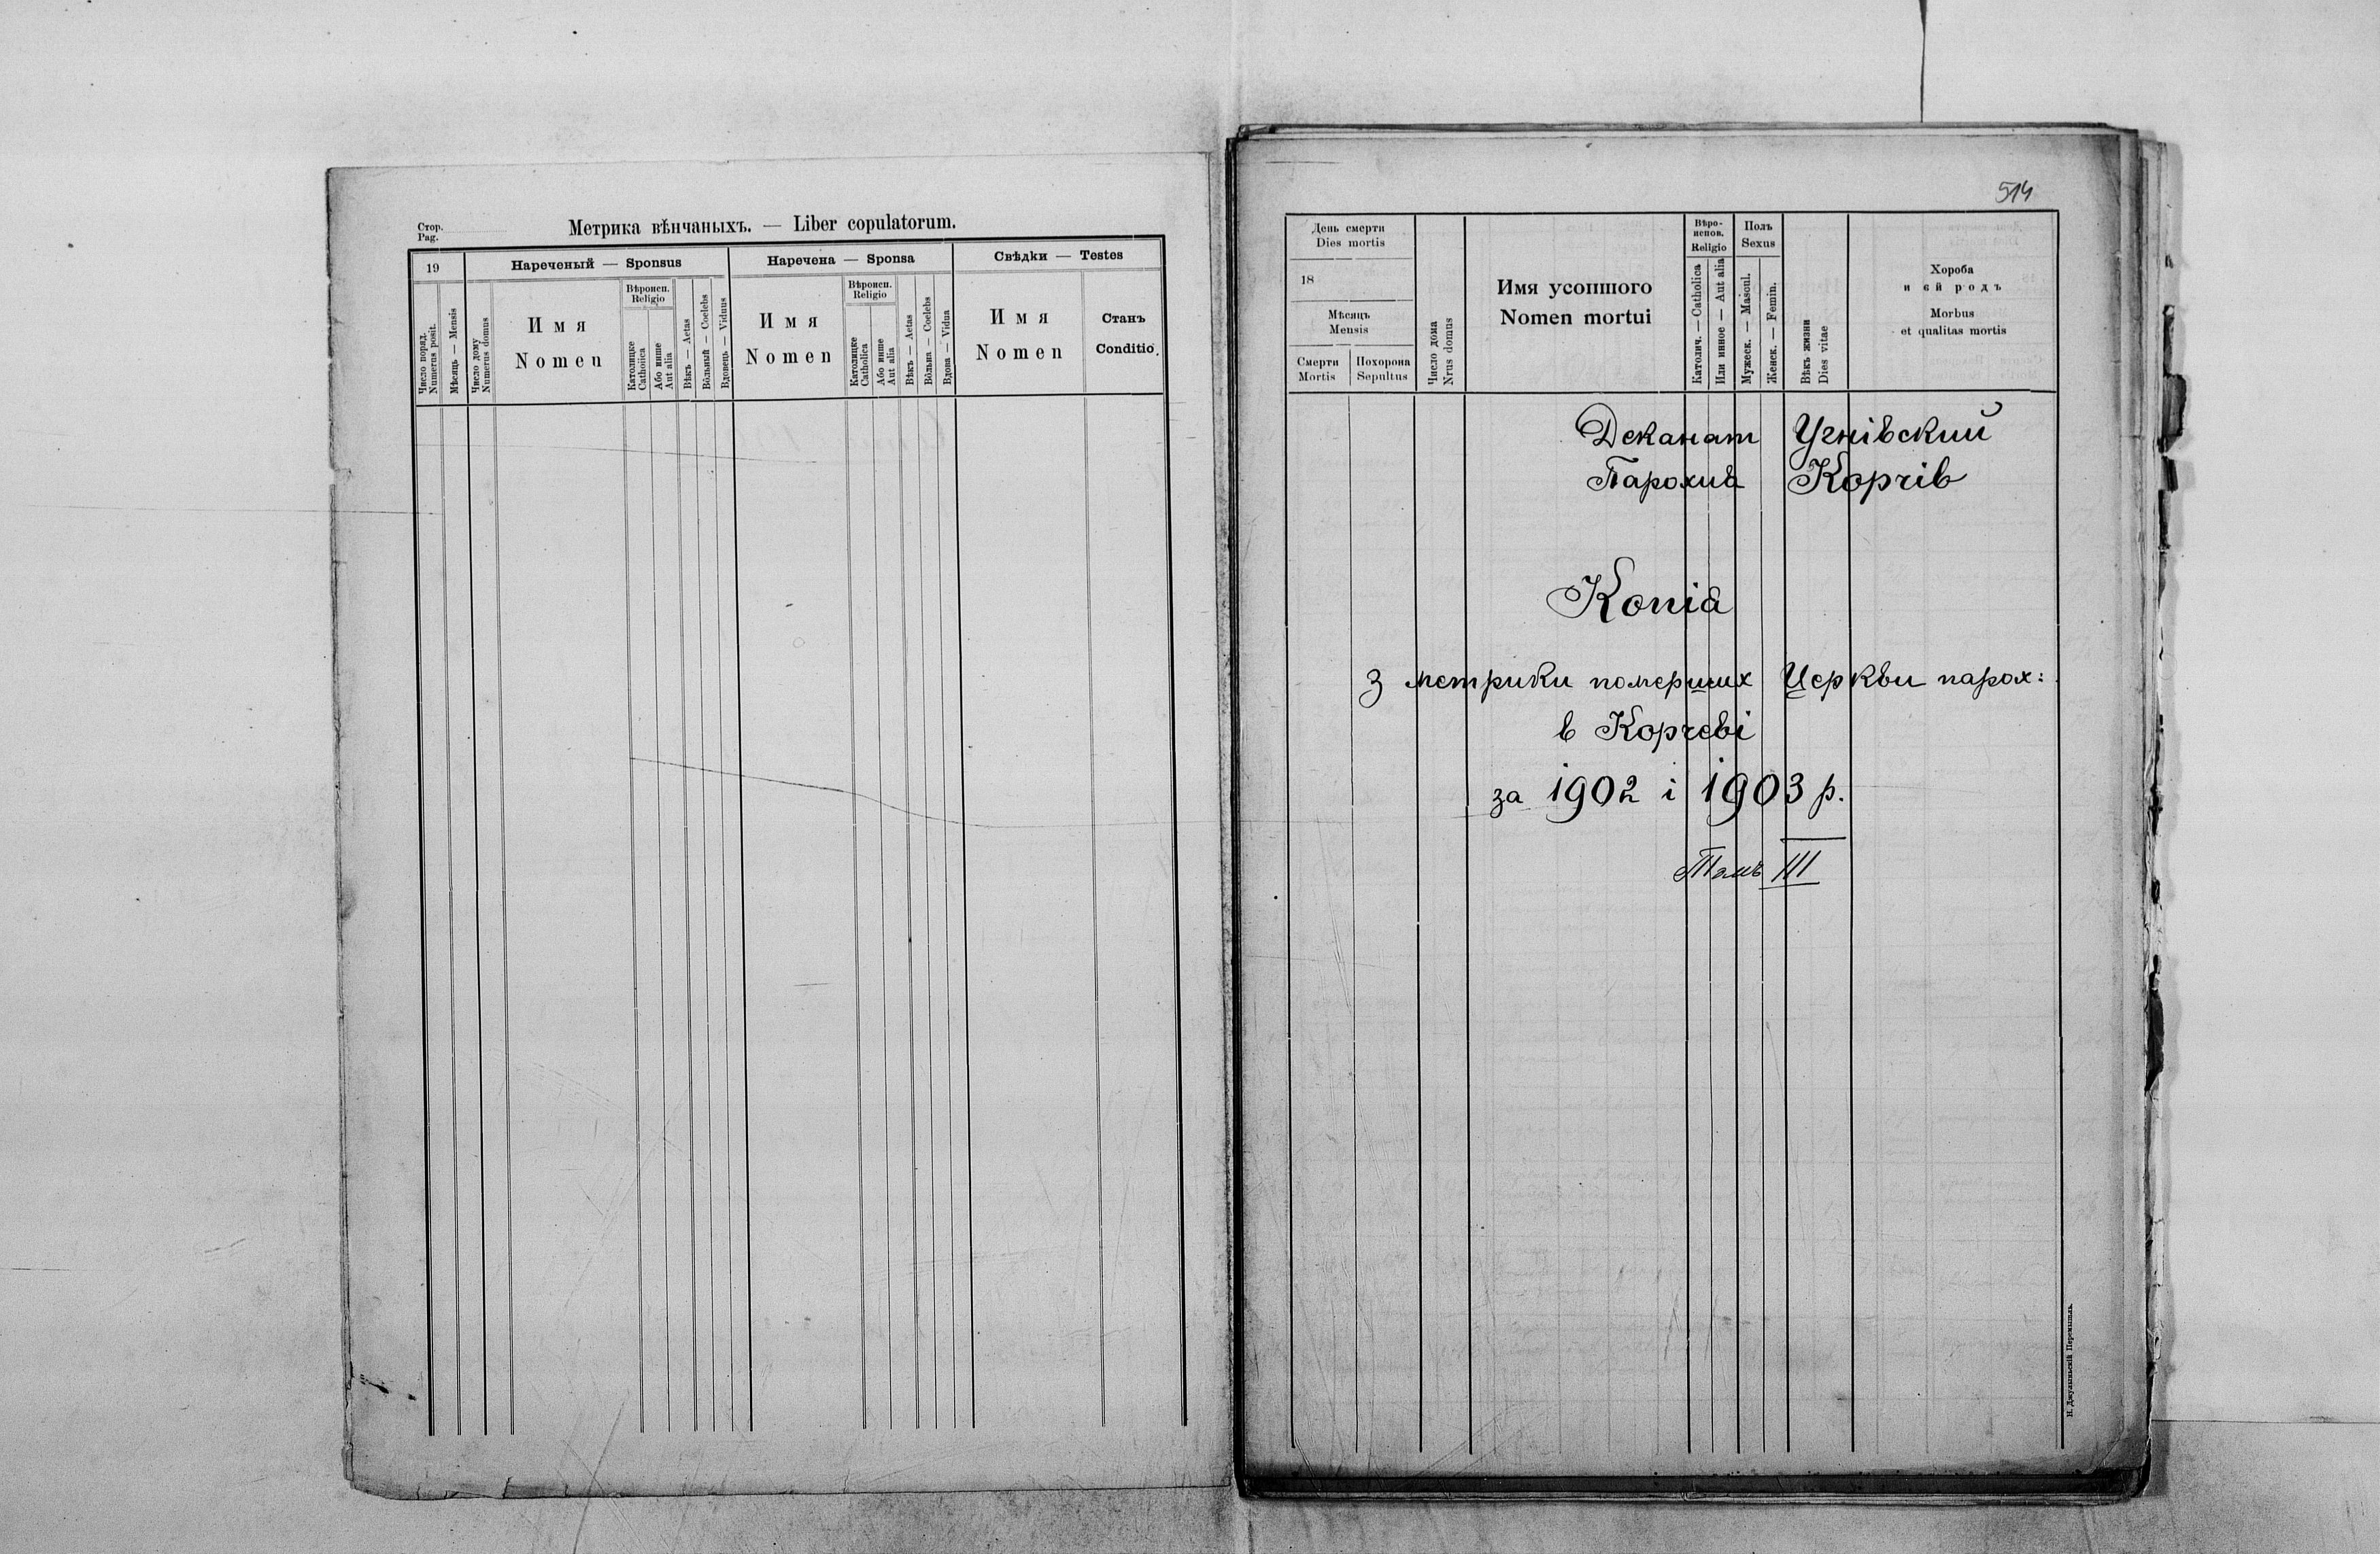 Стор.
Pag.
Метрика вѣнчаныхъ. — Liber copulatorum.
19
Нареченый — Sponsus
Наречена — Sponsa
Свѣдки — Testes
Число поряд.
Numerus posit.
Мѣсяць — Mensis
Число дому
Numerus domus
Имя
Nomen
Вѣроисп.
Religio
Католицке
Catholica
Або инше
Aut alia
Вѣкъ — Aetas
Вôльный — Coelebs
Вдовець — Viduus
Имя
Nomen
Вѣроисп.
Religio
Католицке
Catholica
Або инше
Aut alia
Вѣкъ — Aetas
Вôльна — Coelebs
Вдова — Vidua
Имя
Nomen
Станъ
Conditio
514
День смерти
Dies mortis
18
Мѣсяцъ
Mensis
Смерти
Mortis
Похорона
Sepultus
Число дома
Nrus domus
Имя усопшого
Nomen mortui
Вѣро-
испов.
Religio
Католич. — Catholica
Или инное — Aut alia
Полъ
Sexus
Мужеск. — Mascul.
Женск. — Femin.
Вѣкъ жизни
Dies vitae
Хороба
и єй родъ
Morbus
et qualitas mortis
Деканат Угнівский
Парохия Корчів
Копія
з метрики померших Церкви парох:
в Корчеві
за 1902 і 1903 р.
Томъ III
Н. Джулыньскій Перемышль.